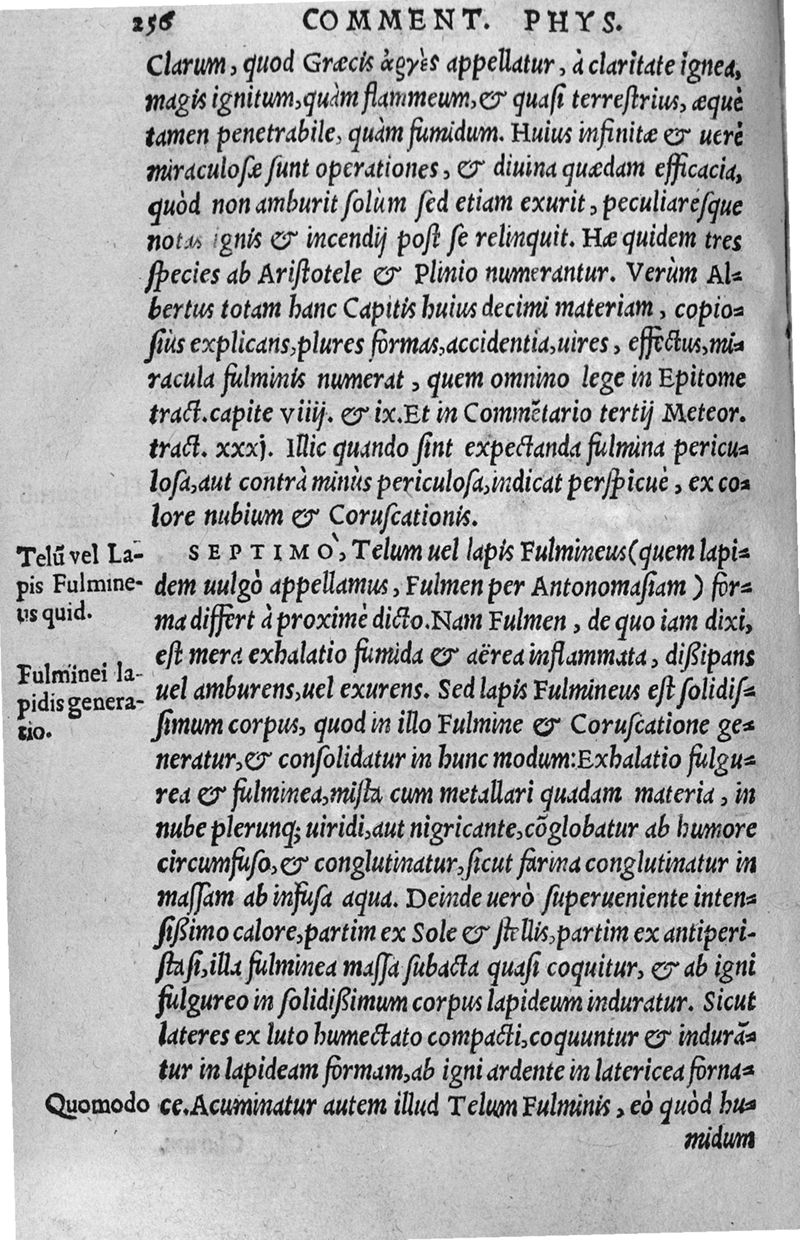 256 COMMENT. PHYS.
Clarum, quod Græcis ἀργὴς appellatur, à claritate ignea,
magis ignitum, quàm flammeum, & quasi terrestrius, æquè
tamen penetrabile, quàm fumidum. Huius infinitæ & uerè
miraculosæ sunt operationes, & diuina quædam efficacia,
quòd non amburit solùm sed etiam exurit, peculiaresque
notas ignis & incendij post se relinquit. Hæ quidem tres
species ab Aristotele & Plinio numerantur. Verùm Al=
bertus totam hanc Capitis huius decimi materiam, copio=
siùs explicans, plures formas, accidentia, uires, effectus, mi=
racula fulminis numerat, quem omnino lege in Epitome
tract. capite viiij. & ix. Et in Commētario tertij Meteor.
tract. xxxj. Illic quando sint expectanda fulmina pericu=
losa, aut contrà minùs periculosa, indicat perspicuè, ex co=
lore nubium & Coruscationis.
SEPTIMÒ, Telum uel lapis Fulmineus (quem lapi=
dem uulgò appellamus, Fulmen per Antonomasiam) for=
ma differt à proximè dicto. Nam Fulmen, de quo iam dixi,
est mera exhalatio fumida & aërea inflammata, dißipans
uel amburens, uel exurens. Sed lapis Fulmineus est solidis=
simum corpus, quod in illo Fulmine & Coruscatione ge=
neratur, & consolidatur in hunc modum: Exhalatio fulgu=
rea & fulminea, mista cum metallari quadam materia, in
nube plerunq; uiridi, aut nigricante, cōglobatur ab humore
circumfuso, & conglutinatur, sicut farina conglutinatur in
massam ab infusa aqua. Deinde uerò superueniente inten=
sißimo calore, partim ex Sole & stellis, partim ex antiperi-
stasi, illa fulminea massa subacta quasi coquitur, & ab igni
fulgureo in solidißimum corpus lapideum induratur. Sicut
lateres ex luto humectato compacti, coquuntur & indurā=
tur in lapideam formam, ab igni ardente in latericea forna=
ce. Acuminatur autem illud Telum Fulminis, eò quòd hu=
midum
Telū vel La-
pis Fulmine-
us quid.
Fulminei la-
pidis genera-
tio.
Quomodo